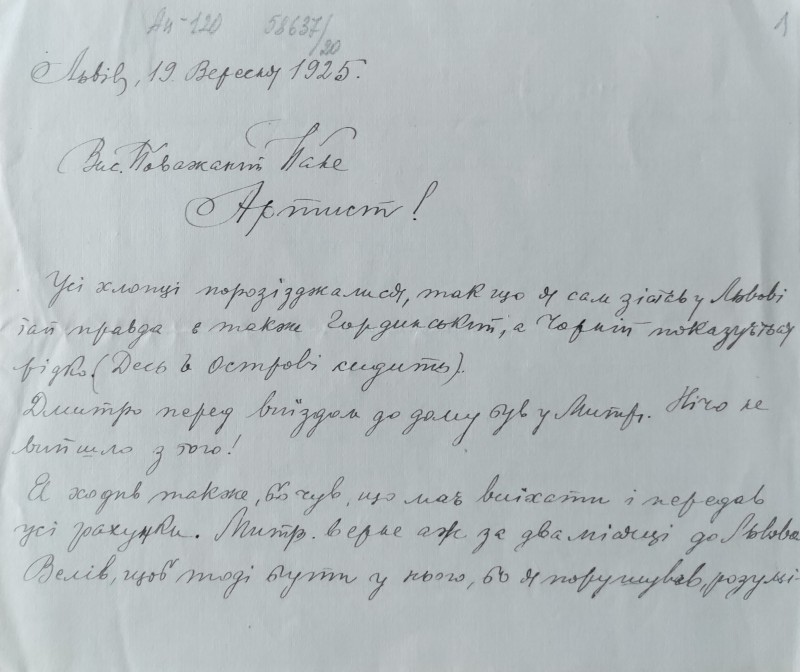 Ан-120 58637/20
1
Львів, 19. Вересня 1925.
Вис. Поважаний Пане
Артист!
Усі хлопці порозізджалися, так що я сам зістав у Львові
правда є також Гординський, а Чорній показується
рідко (Десь в Острові сидить).
Дмитро перед виїздом до дому був у Митр. Нічо не
вийшло з того!
Я ходив також, бо чув, що має виїхати і передав
усі рахунки. Митр. верне аж за два місяці до Львова
Велів, щоб тоді бути у нього, бо я порушував, розумі-